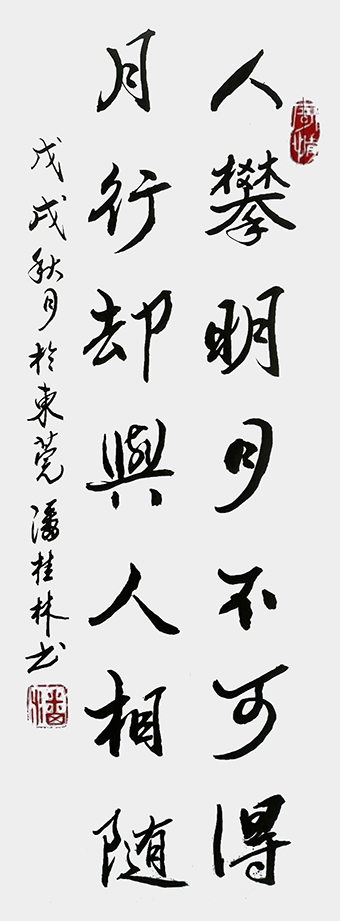 人攀明月不可得
月行却與人相隨
戊戌秋月於東莞潘桂林书